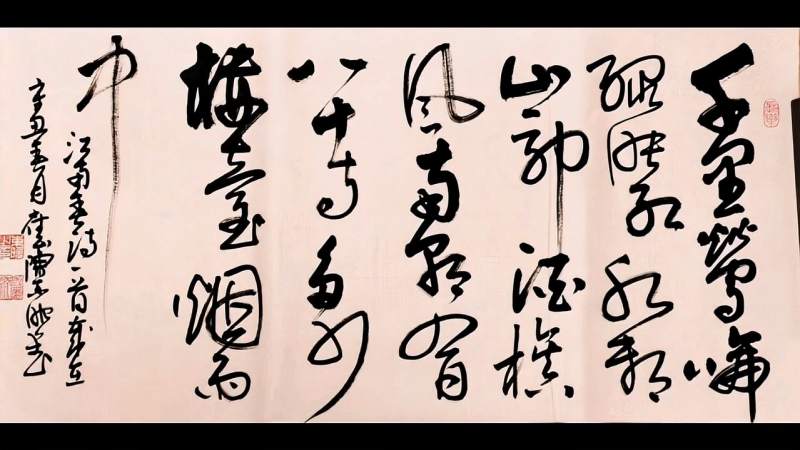 千里鶯啼
綠映紅水村
山郭酒旗
風南朝四百
八十寺多少
樓臺烟雨
中
江南春詩一首歲在
辛丑春月